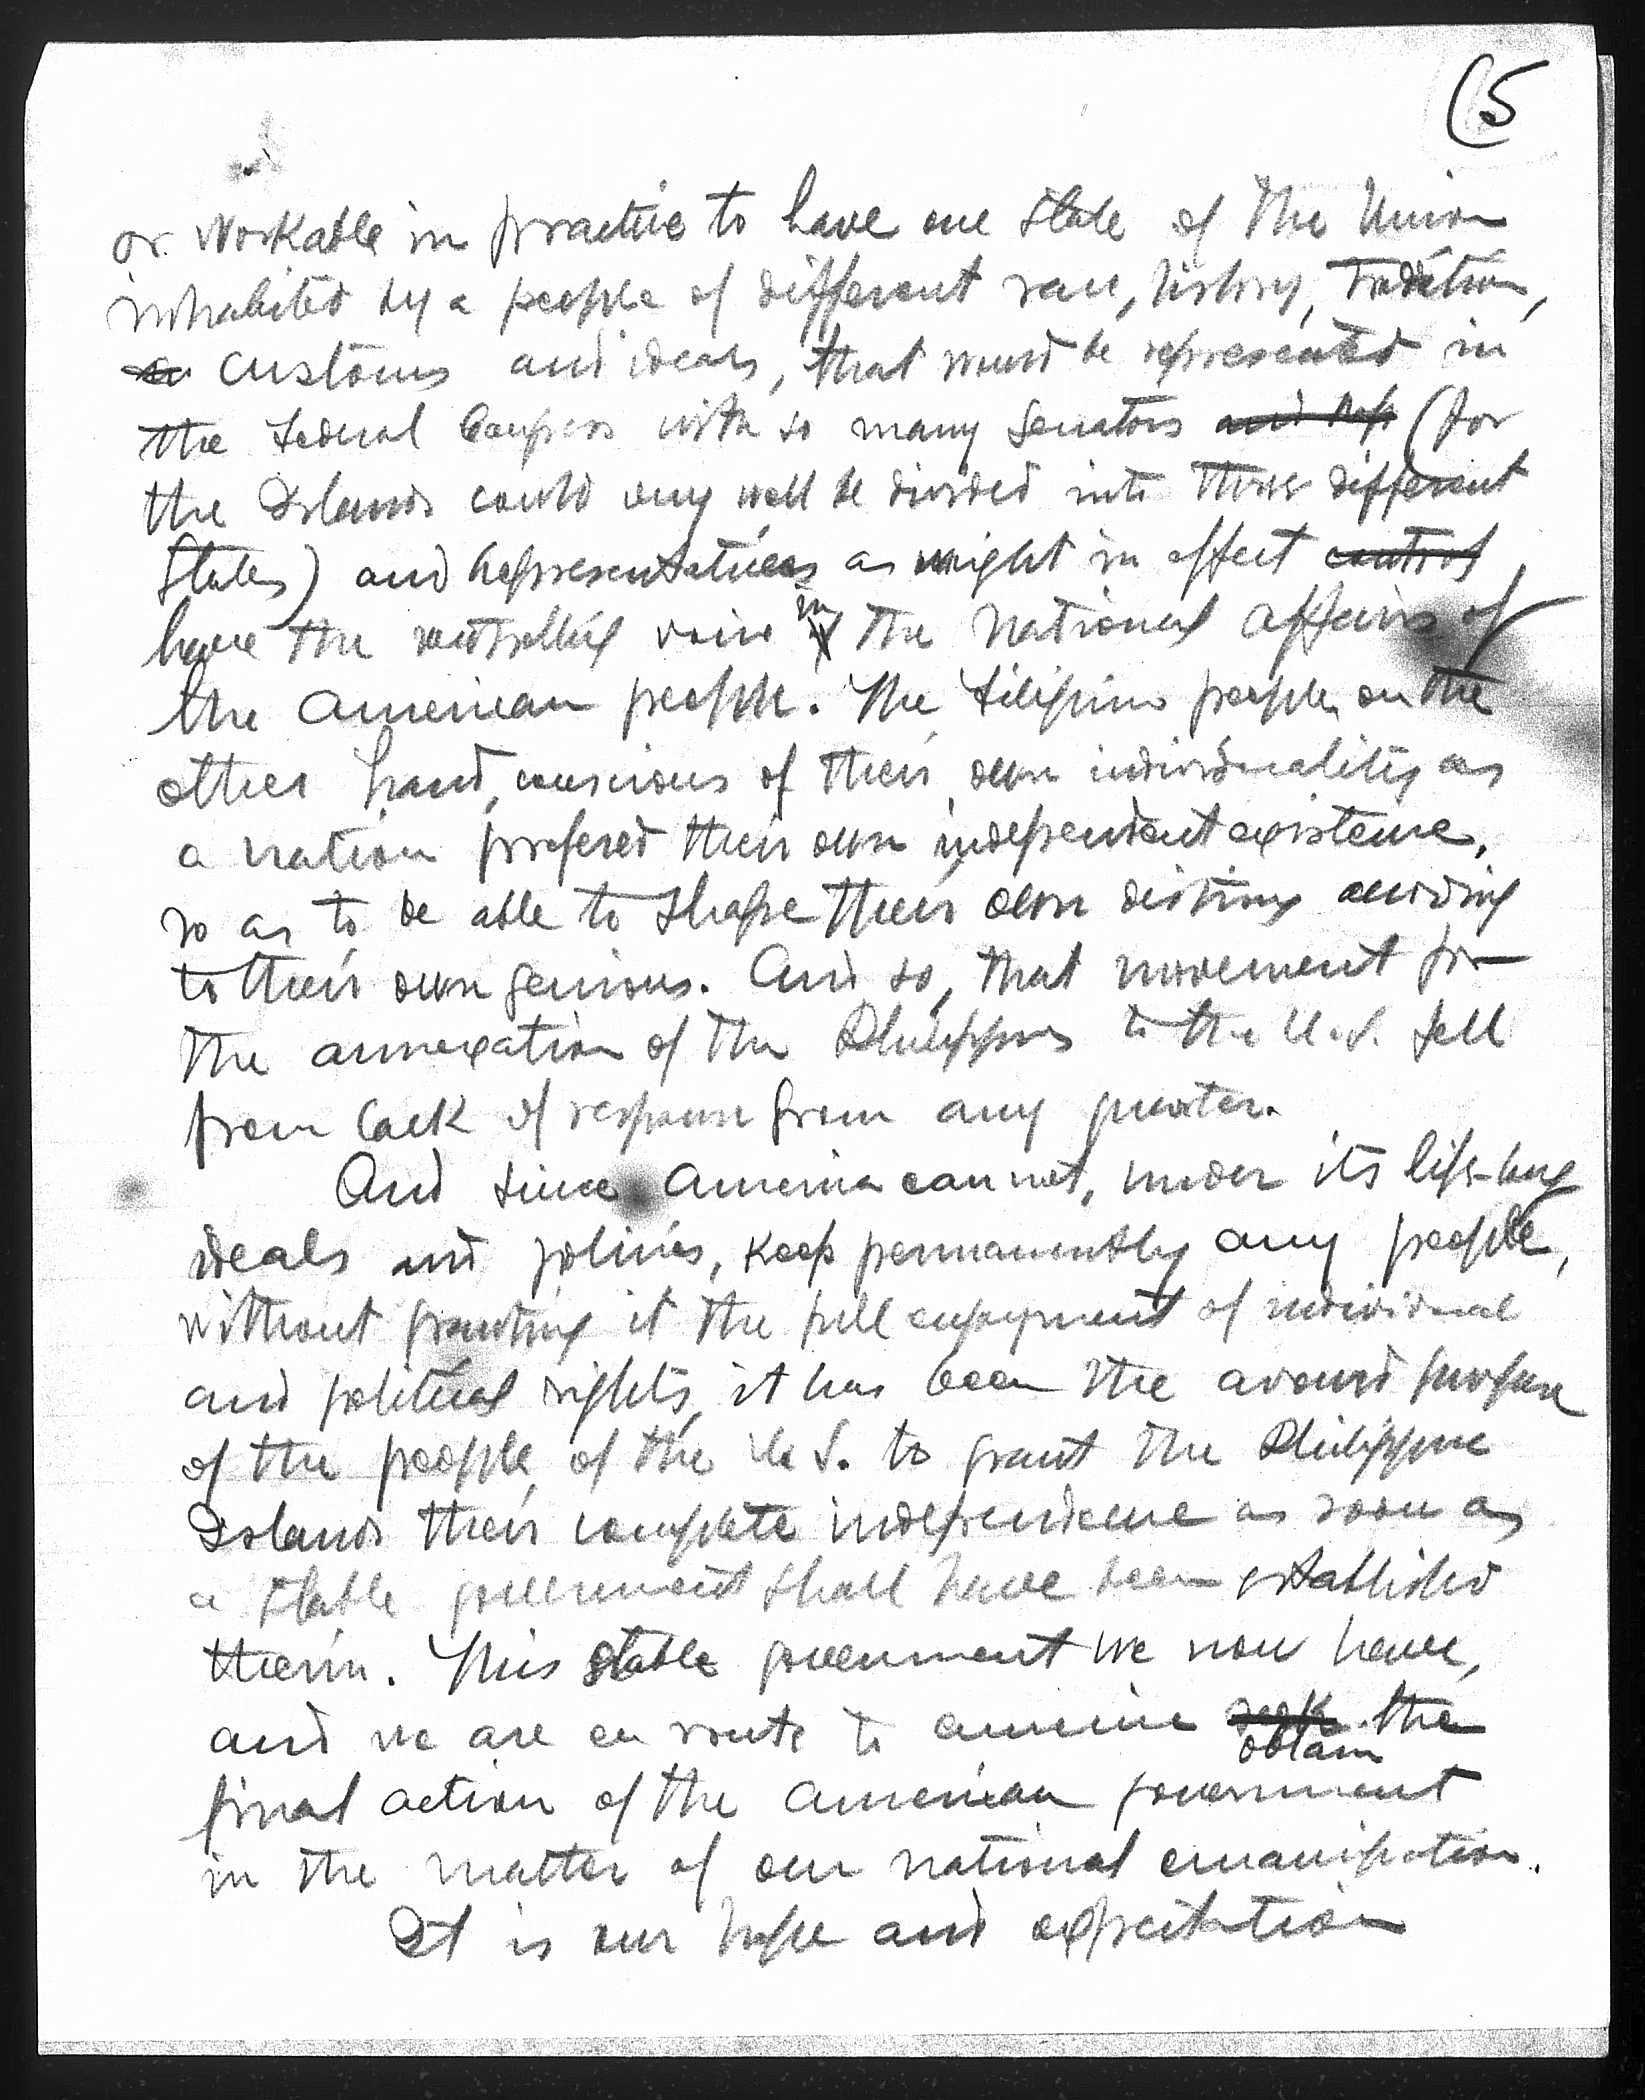 (5
or workable in practice to have one state of the Union
inhabited by a people of different race, history, tradition,
customs and ideals, that would be represented in
the Federal Congress with so many Senators and Rep (for
the Islands could very well be divided into three different
States) and Representatives as might in effect control
have the controlling voice in the national affairs of
the American people. The Filipino people, on the
other hand, conscious of their own individuality as
a nation prefered their own independent existence,
so as to be able to shape their own destiny according
to their own genious. And so, that movement for
the annexation of the Philippines to the U.S. fell
from lack of response from any quarter.
And since America cannot, under its life-long
ideals and policies, keep permanently any people,
without granting it the full enjoyment of individual
and political rights, it has been the avowed purpose
of the people of the U.S. to grant the Philippine
Islands their complete independence as soon as
a stable government shall have been established
therein. This stable government we now have,
and we are en route to seek the
obtain
final action of the American government
in the matter of our national emancipation.
It is our hope and expectation